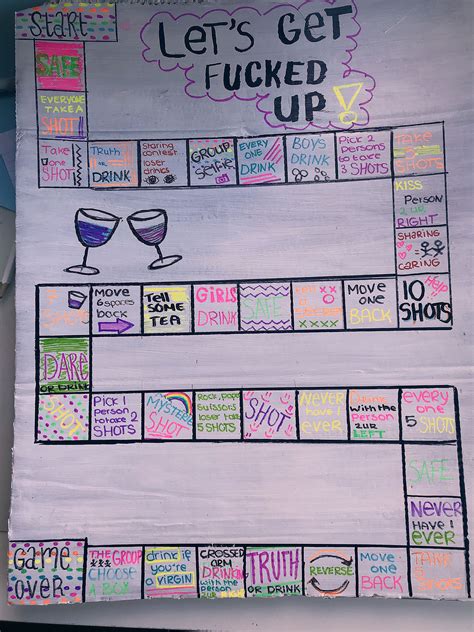 Start
LET'S GET
FUCKED
UP!
SAFE
EVERYONE
TAKE A
SHOT!
Take
one
SHOT
Truth
or
DRINK
Staring
contest
loser
drinks
GROUP
SELFIE
EVERY
ONE
DRINK
BOYS
DRINK
Pick 2
Persons
to take
3 SHOTS
TAKE
SHOTS
KISS
Person
2 UR
RIGHT
SHARING
CARING
10
SHOTS
Help
MOVE
one
BACK
SAFE
GIRLS
DRINK
TELL
SOME
TEA
MOVE
6 spaces
back
SHOTS
DARE
OR DRINK
SHOT
Pick 1
Person
to take 2
SHOTS
MYSTERIE
SHOT
Rock, Paper
Suissors
loser takes
5 SHOTS
SHOT
Never
have I
ever
Drink
with the
Person
2 UR
LEFT
every
one
5
SHOTS
SAFE
Never
HAVE I
ever
TAKE
5
SHOTS
MOVE
one
BACK
REVERSE
TRUTH
OR DRINK
CROSSED
ARM
DRINKING
with the
person
drink if
you're
a VIRGIN
THE GROUP
CHOOSE
A BOX
Game
over